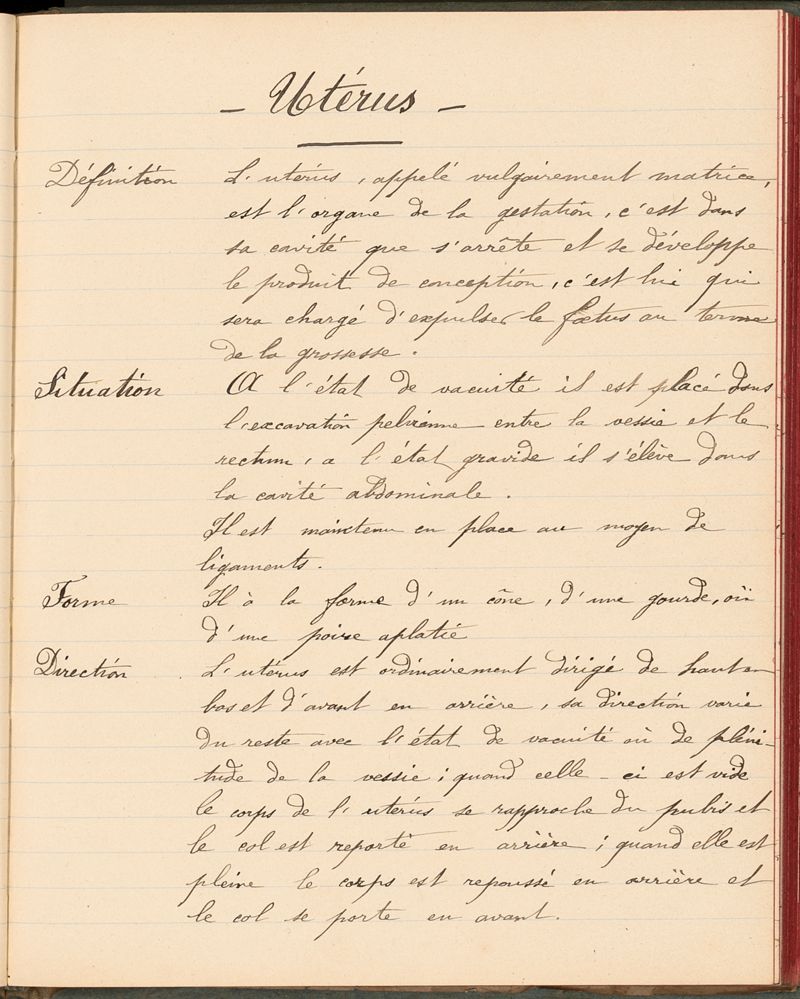 - Utérus -
Définition L'utérus, appelé vulgairement matrice,
est l'organe de la gestation, c'est dans
sa cavité que s'arrête et se développe
le produit de conception, c'est lui qui
sera chargé d'expulser le fœtus au terme
de la grossesse.
Situation A l'état de vacuité il est placé dans
l'excavation pelvienne entre la vessie et le
rectum, a l'état gravide il s'élève dans
la cavité abdominale.
Il est maintenu en place au moyen de
ligaments.
Forme Il à la forme d'un cône, d'une gourde, où
d'une poire aplatie
Direction L'utérus est ordinairement dirigé de haut en
bas et d'avant en arrière, sa direction varie
du reste avec l'état de vacuité où de pléni-
tude de la vessie; quand celle-ci est vide
le corps de l'utérus se rapproche du pubis et
le col est reporté en arrière; quand elle est
pleine le corps est repoussé en arrière et
le col se porte en avant.